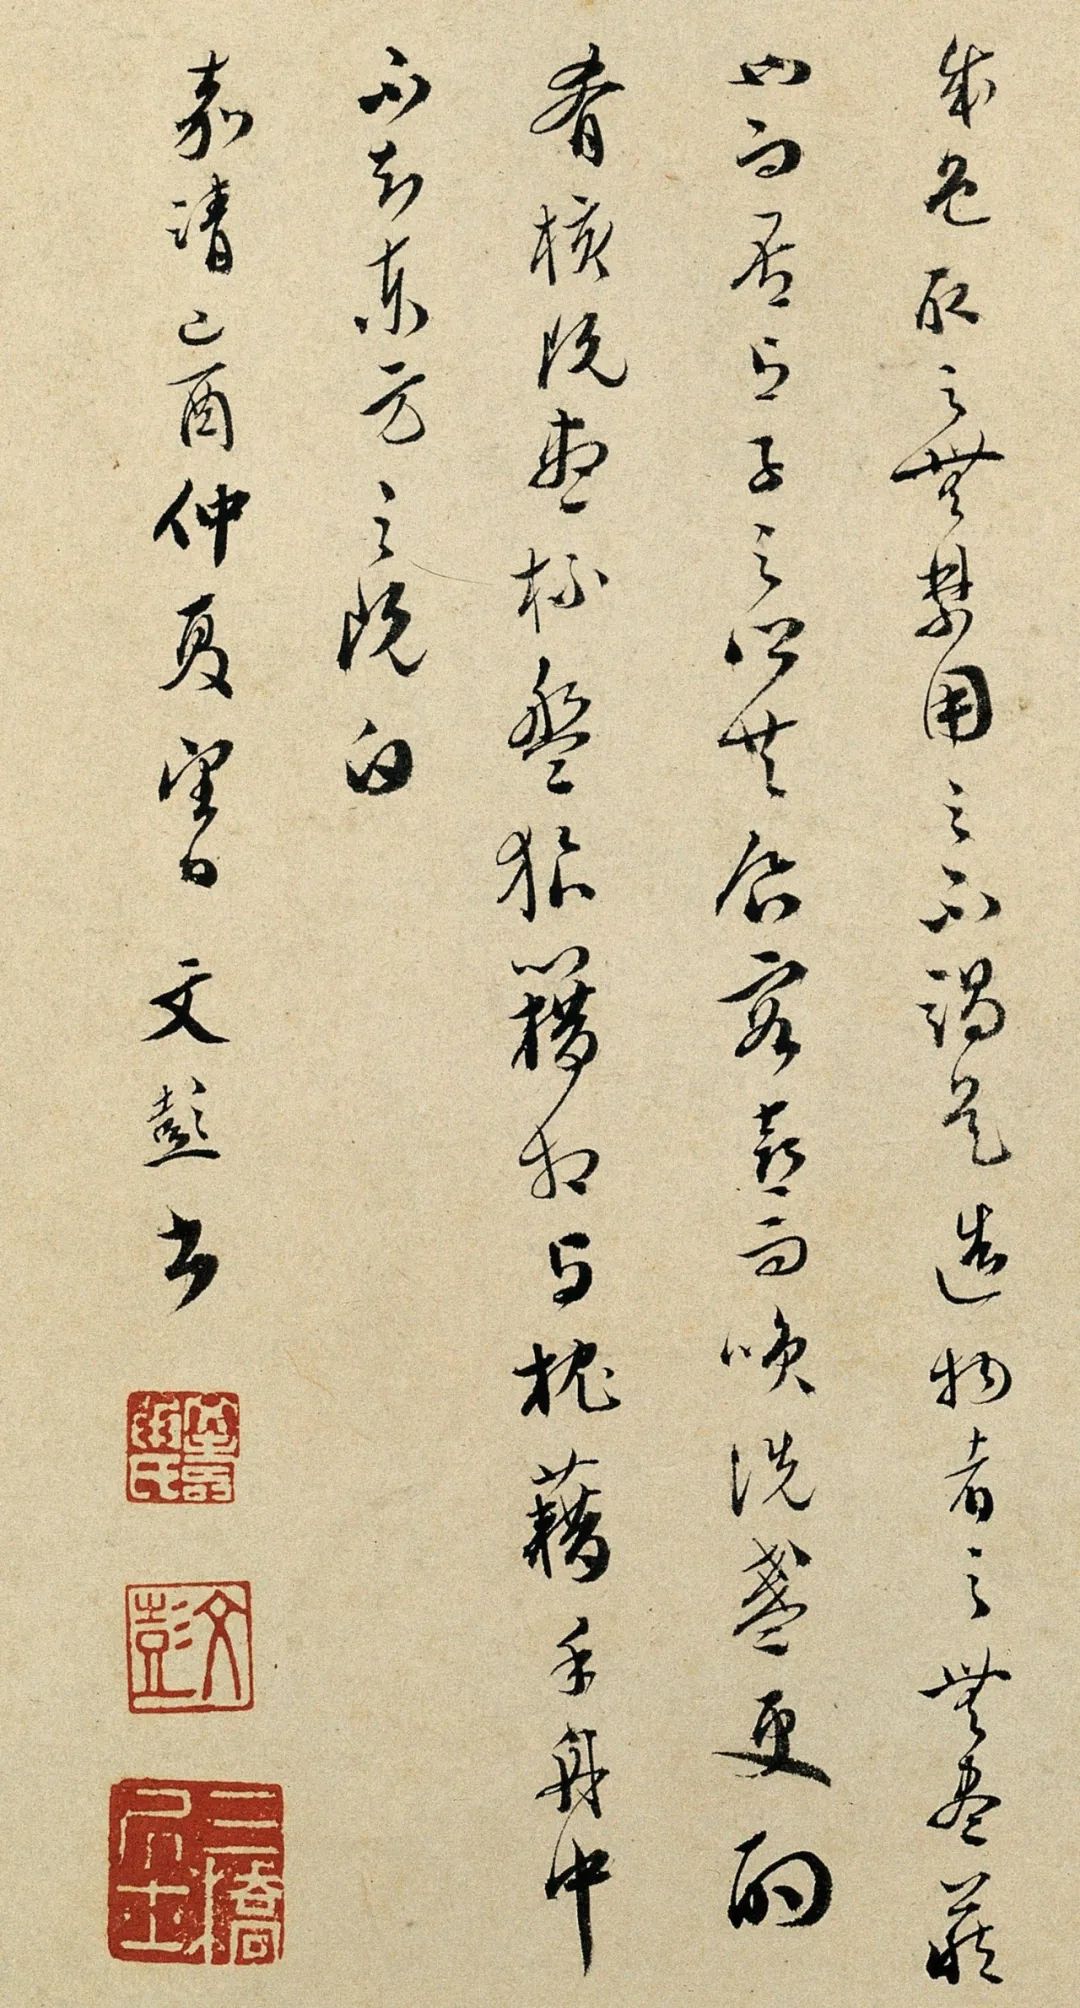 成色取之無禁用之不竭是造物者之無盡藏
也而吾與子之所共食客喜而咲洗盞更酌
肴核既盡杯盤狼籍相與枕藉乎舟中
不知東方之既白
嘉靖己酉仲夏望日 文彭書
文壽承氏
文彭
三橋居士